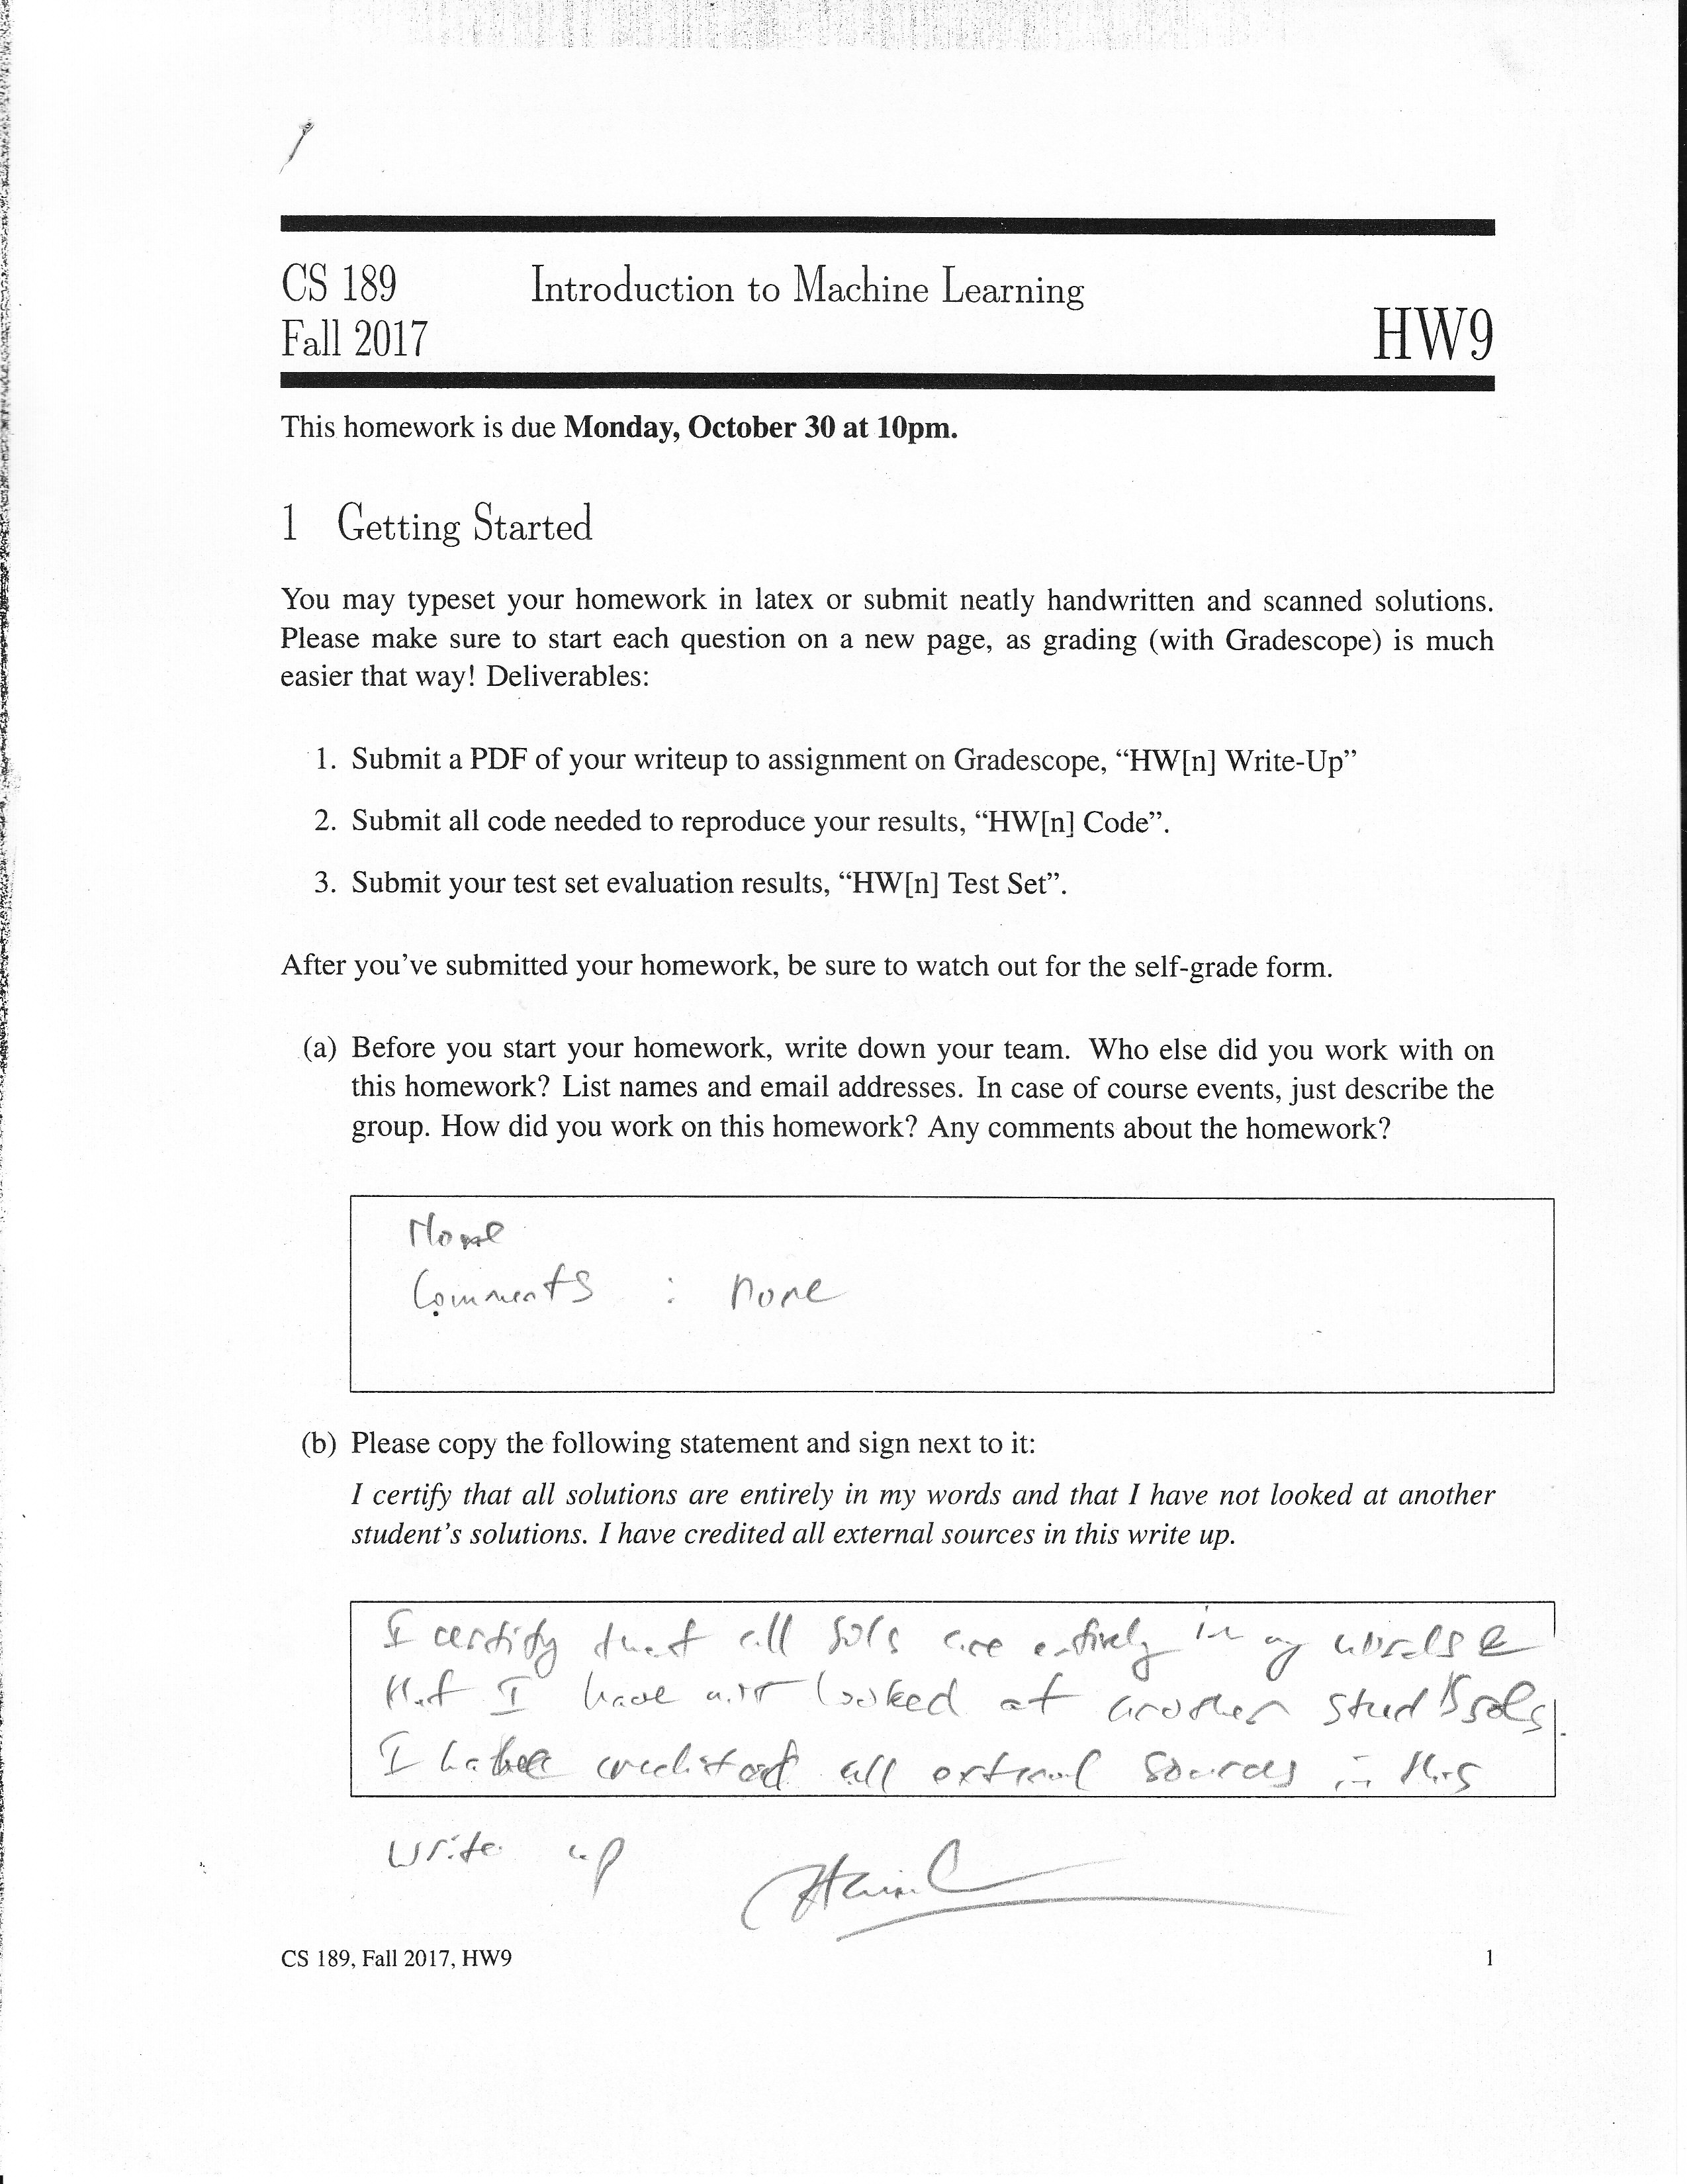 CS 189 Introduction to Machine Learning
Fall 2017 HW9
This homework is due Monday, October 30 at 10pm.
1 Getting Started
You may typeset your homework in latex or submit neatly handwritten and scanned solutions.
Please make sure to start each question on a new page, as grading (with Gradescope) is much
easier that way! Deliverables:
1. Submit a PDF of your writeup to assignment on Gradescope, “HW[n] Write-Up”
2. Submit all code needed to reproduce your results, “HW[n] Code”.
3. Submit your test set evaluation results, “HW[n] Test Set”.
After you’ve submitted your homework, be sure to watch out for the self-grade form.
(a) Before you start your homework, write down your team. Who else did you work with on
this homework? List names and email addresses. In case of course events, just describe the
group. How did you work on this homework? Any comments about the homework?
None
Comments : none
(b) Please copy the following statement and sign next to it:
I certify that all solutions are entirely in my words and that I have not looked at another
student’s solutions. I have credited all external sources in this write up.
I certify that all sols are entirely in my words &
that I have not looked at another stud's sols.
I have credited all external sources in this
write up
CS 189, Fall 2017, HW9 1